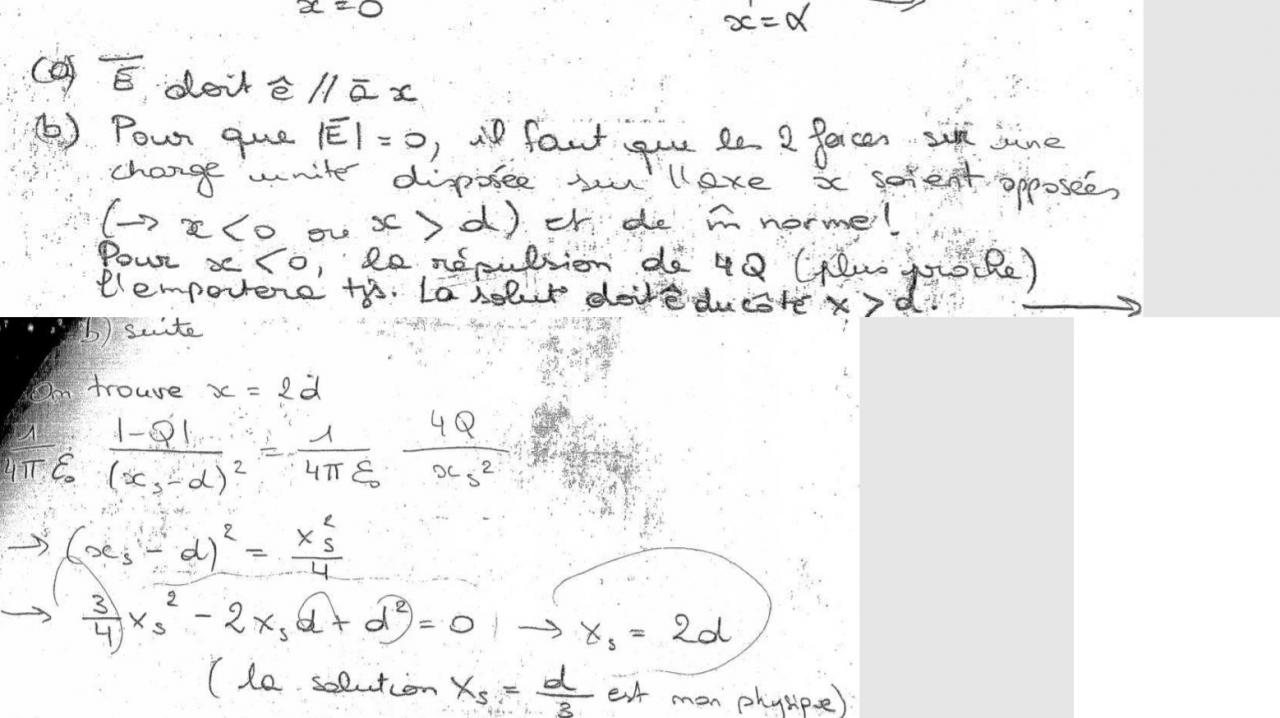 x = 0
x = α
(a) E̅ doit ê // a̅ x
(b) Pour que |E̅| = 0, il faut que les 2 forces sur une
charge unité disposée sur l'axe x soient opposées
(→ x < 0 ou x > d) et de m̂ norme!
Pour x < 0, la répulsion de 4Q (plus proche)
l'emportera tjs. La solut° doit ê du côté x > d. →
b) suite
On trouve x = 2d
1/(4π ε₀) |-Q|/(xₛ - d)² = 1/(4π ε₀) 4Q/xₛ²
→ (xₛ - d)² = xₛ²/4
→ 3/4 xₛ² - 2xₛd + d² = 0 → xₛ = 2d
(la solution xₛ = d/3 est non physique)